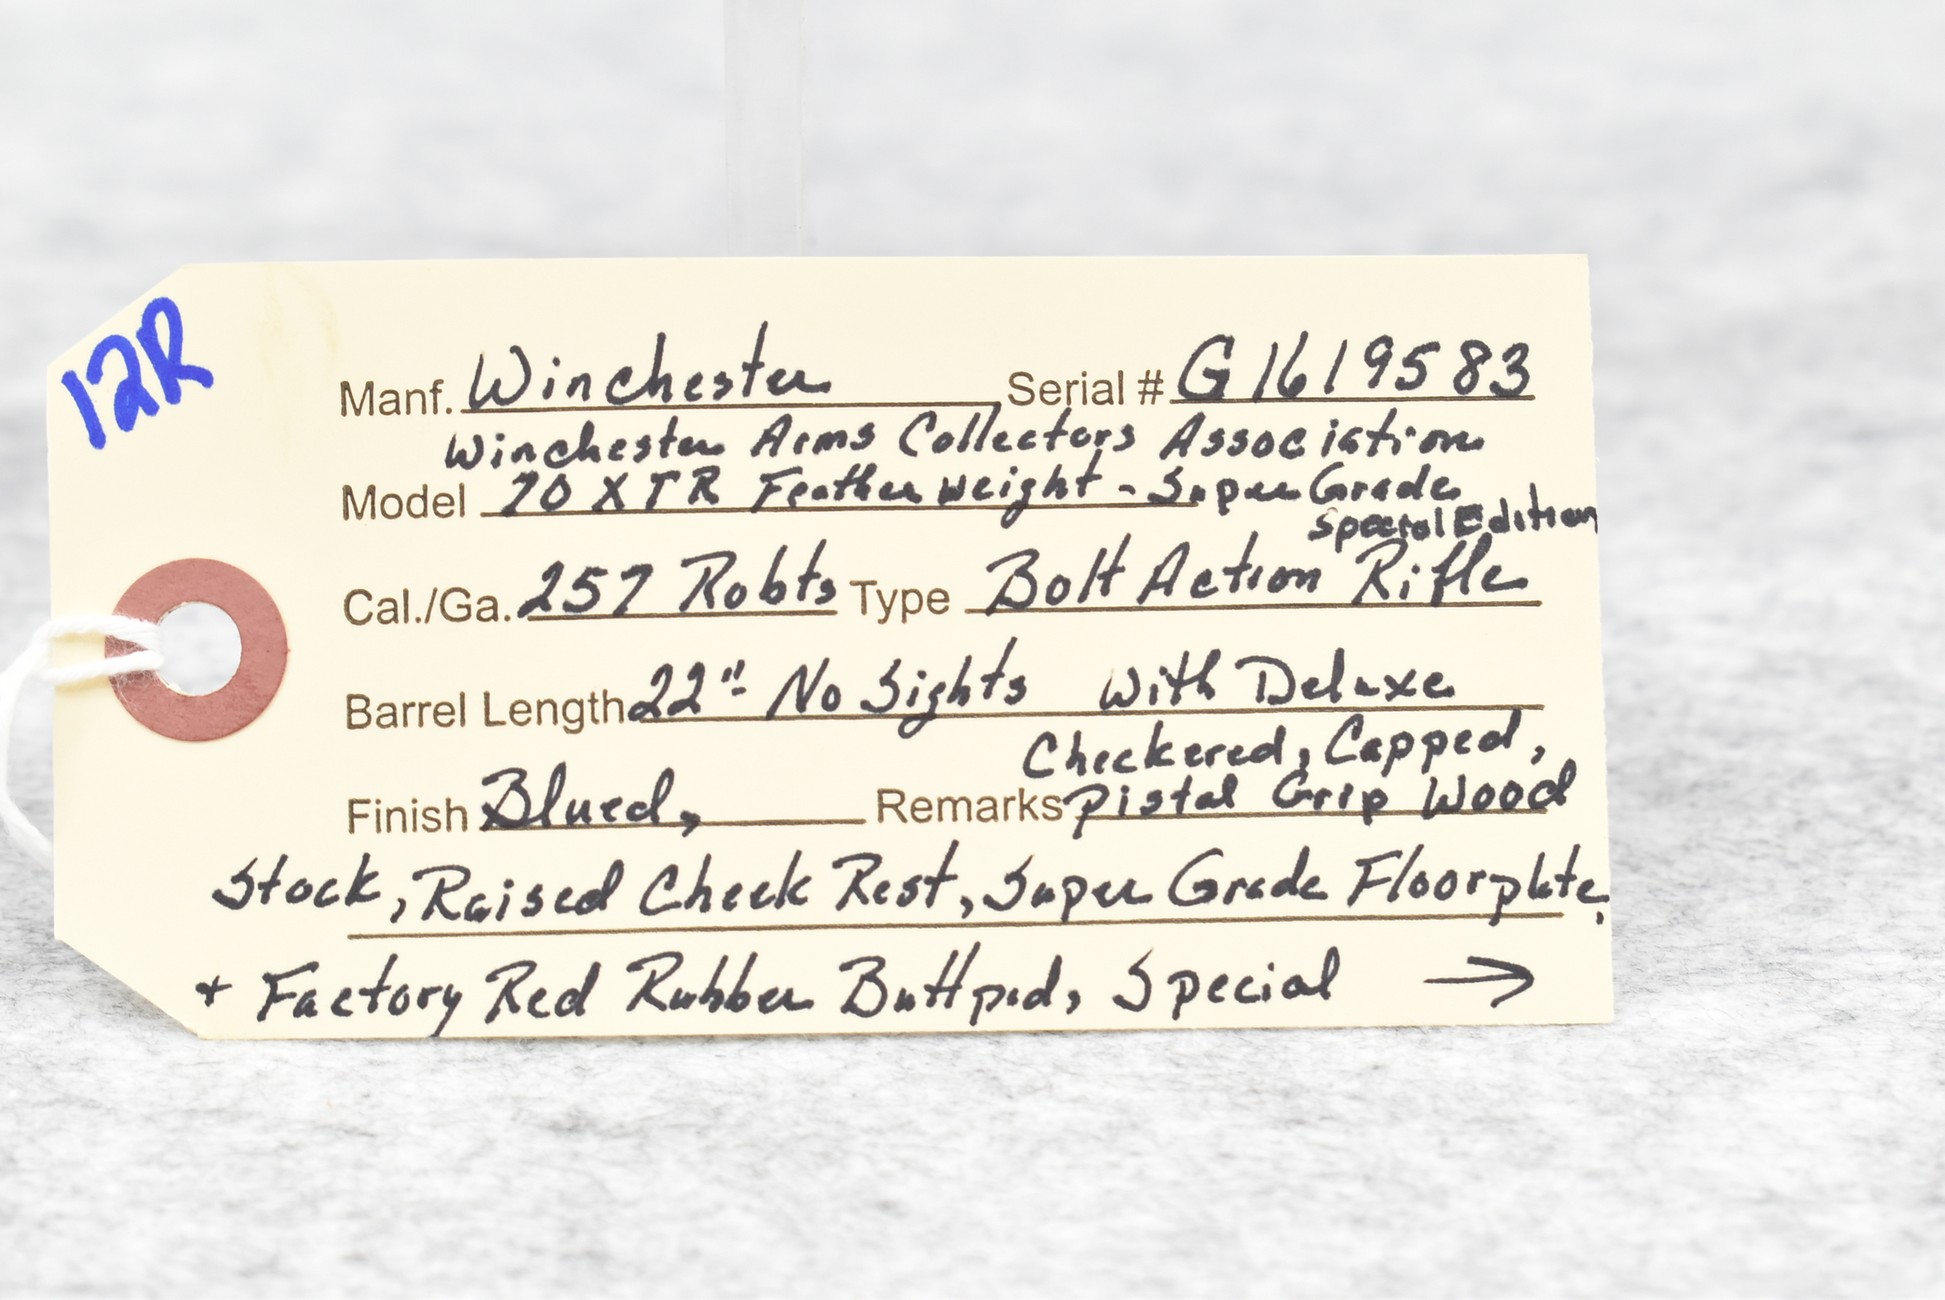 12R
Manf. Winchester Serial # G1619583
Winchester Arms Collectors Association
Model 70 XTR Featherweight - Super Grade
Special Edition
Cal./Ga. 257 Robts Type Bolt Action Rifle
Barrel Length 22" - No Sights With Deluxe
Checkered, Capped,
Finish Blued, Remarks Pistal Grip Wood
Stock, Raised Cheek Rest, Super Grade Floorplate,
+ Factory Red Rubber Buttpad, Special →